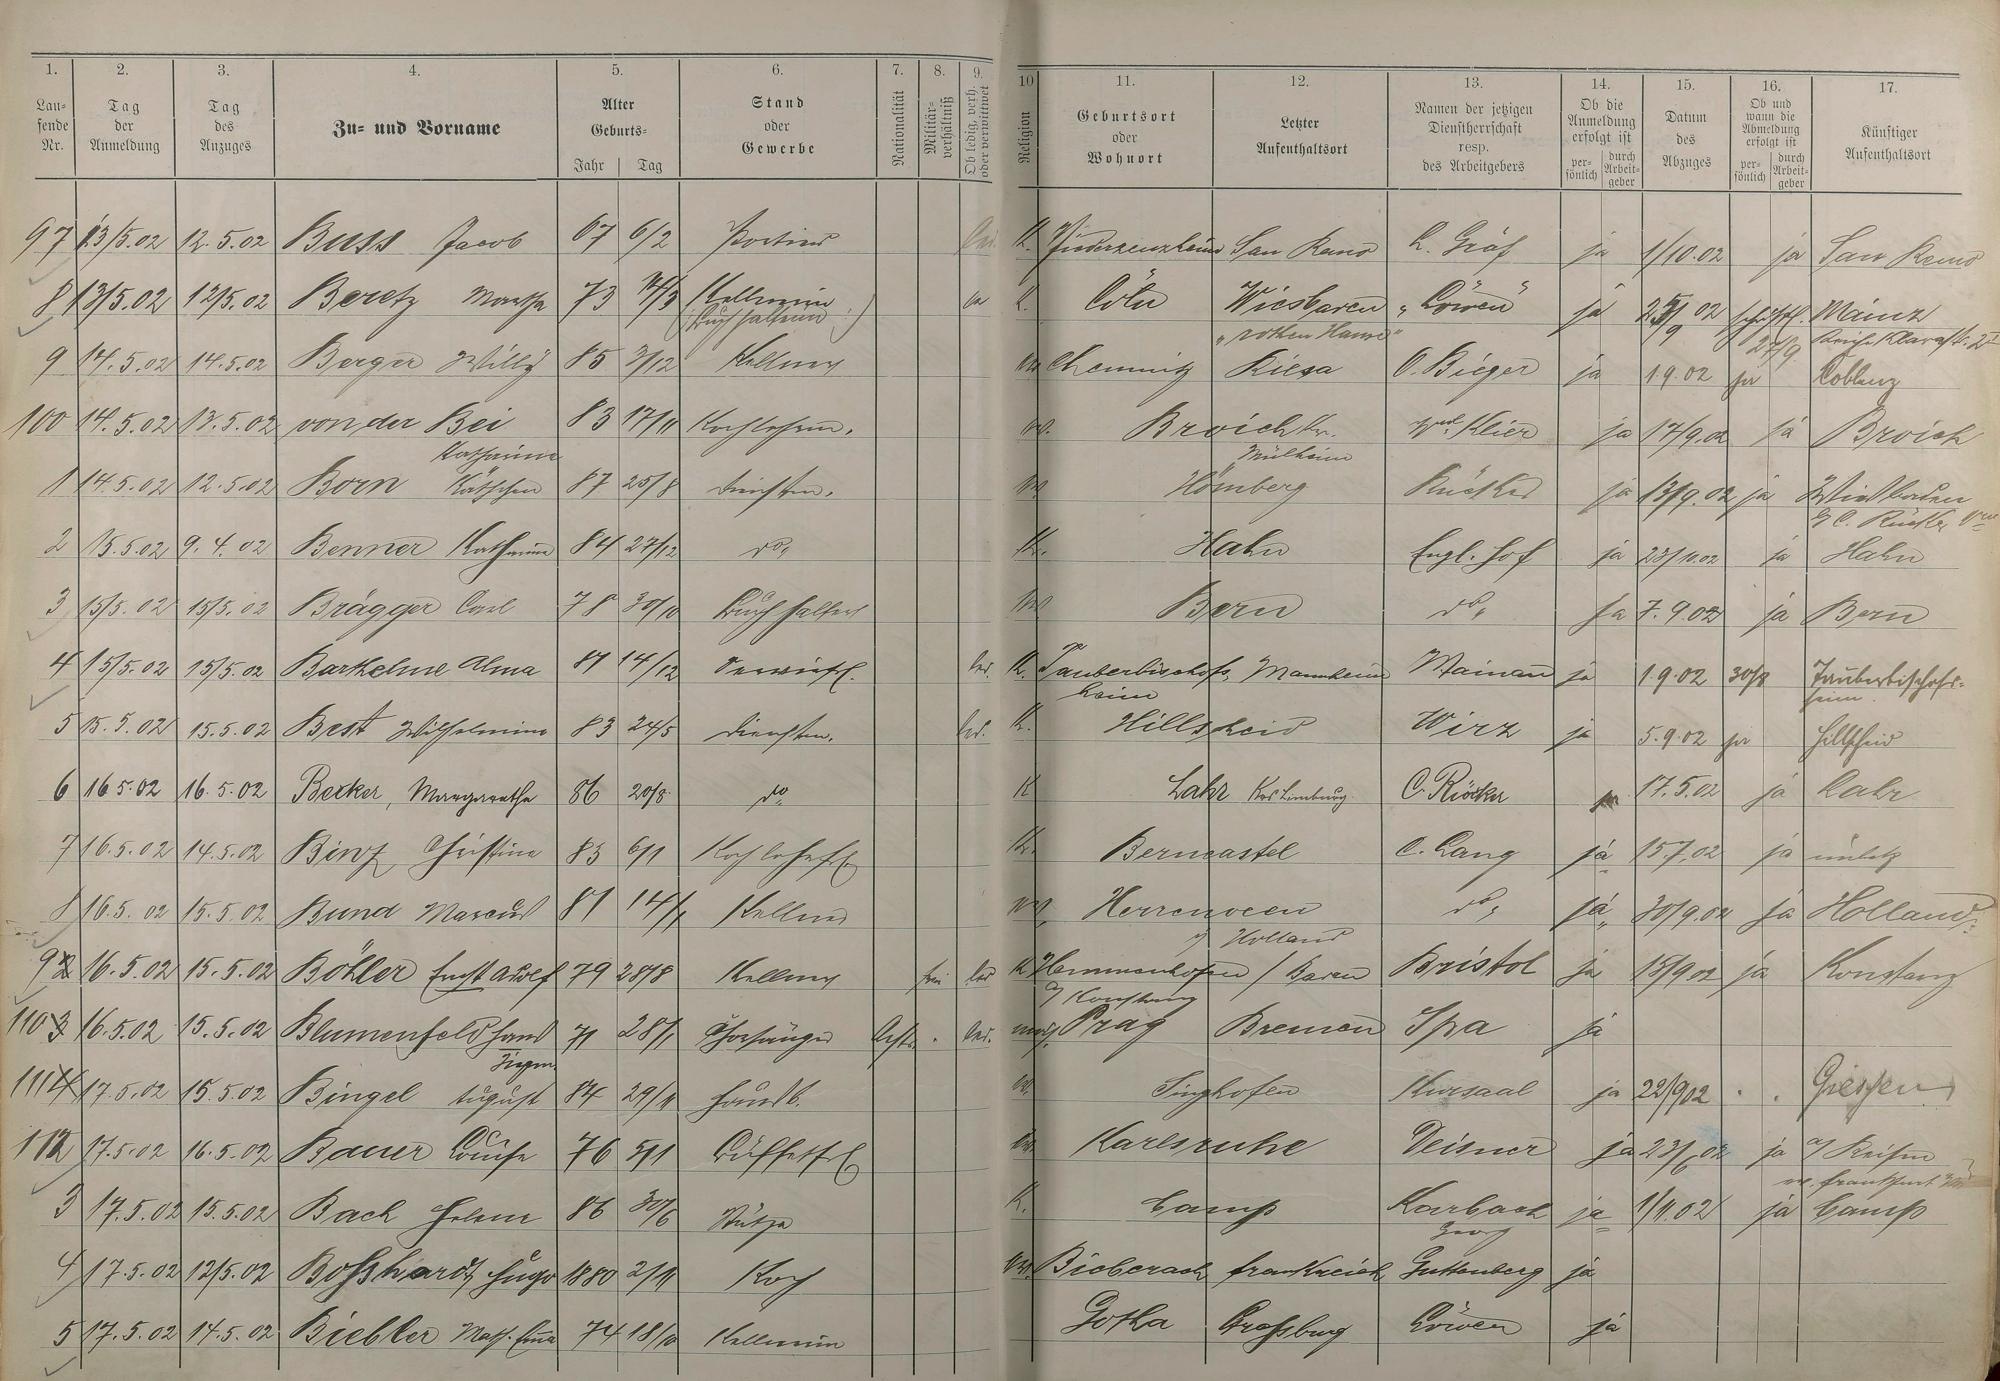 1. 2. 3. 4. 5. 6. 7. 8. 9. 10 11. 12. 13. 14. 15. 16. 17.
Lau-
fende
Nr.
Tag
der
Anmeldung
Tag
des
Anzuges
Zu- und Vorname
Alter
Geburts-
Jahr Tag
Stand
oder
Gewerbe
Nationalität
Militär-
verhältniß
Ob ledig, verh.
oder verwittwet
Religion
Geburtsort
oder
Wohnort
Letzter
Aufenthaltsort
Namen der jetzigen
Dienstherrschaft
resp.
des Arbeitgebers
Ob die
Anmeldung
erfolgt ist
per-
sönlich
durch
Arbeit-
geber
Datum
des
Abzuges
Ob und
wann die
Abmeldung
erfolgt ist
per-
sönlich
durch
Arbeit-
geber
Künftiger
Aufenthaltsort
97 13/5.02 12.5.02 Buss Jacob 67 6/2 Portier K. San Remo L. Gräf ja 1/10.02 ja San Remo
8 13/5.02 12/5.02 Beretz Martha 73 Kellnerin K. Cöln Wiesbaden „Löwen" ja Mainz
(Buchhalterin)
9 14.5.02 14.5.02 Berger Willy 85 3/12 Kellner Chemnitz Riesa O. Bieger ja 1.9.02 ja Coblenz
100 14.5.02 13.5.02 von der Bei 83 17/11 Kochlehrn. Broich Kr. Wwe. Klier ja 17/9.02 ja Broich
Katharina Mülheim
1 14.5.02 12.5.02 Born Kätchen 87 25/8 Dienstm. Hömberg Rücker ja 13/9.02 ja Wiesbaden
2 15.5.02 9.4.02 Benner Katharina 84 27/12 do. K. Hahn Engl. Hof ja 23/10.02 ja Hahn
3 15/5.02 15/5.02 Brägger Carl 78 30/10 Buchhalter Bern do. ja 7.9.02 ja Bern
4 15/5.02 15/5.02 Barthelme Alma 81 14/12 Servierfl. led. K. Tauberbischofs- Mannheim Wainau ja 1.9.02 30/8 Tauberbischofs-
heim heim
5 15.5.02 15.5.02 Best Wilhelmine 83 24/5 Dienstm. led. K. Hillscheid Wirz ja 5.9.02 ja Hillscheid
6 16 5.02 16.5.02 Becker, Margarethe 86 20/8 do K Lahr Krs Limburg C. Rücker 17.5.02 ja Lahr
7 16.5.02 14.5.02 Binz, Christine 83 6/1 K. Berncastel C. Lang ja 15.7.02 ja unbek
8 16.5.02 15.5.02 Bund Marcus 81 14/1 Kellner Herrenveen do. ja 30/9.02 ja Holland
Holland
9 16.5.02 15.5.02 Böhler Ernst Adolf 79 28/8 Kellner frei led K Hemmenhofen / Baden Bristol ja 15/9 02 ja Konstanz
Konstanz
110 16.5.02 15.5.02 Blumenfeld Hans 71 28/1 Chorsänger led. Prag Bremen Spa ja
111 17.5.02 15.5.02 Bingel August 84 29/11 Hausb. Singhofen Kursaal ja 22/9 02 Giessen
112 17.5.02 16.5.02 Bauer Louise 76 5/1 Büffetfl Karlsruhe Deisner ja 23/6.02 ja a/ Reisen
3 17.5.02 15.5.02 Bach Helene 86 30/6 Stütze K. Camp Karbach ja 1/11.02 ja Camp
4 17.5.02 12/5.02 Boßhardt Hugo 1880 2/11 Koch Bieberach Frankreich Guttenberg ja
5 17.5.02 14.5.02 Biebler 74 18/10 Kellnerin Gotha Löwen ja